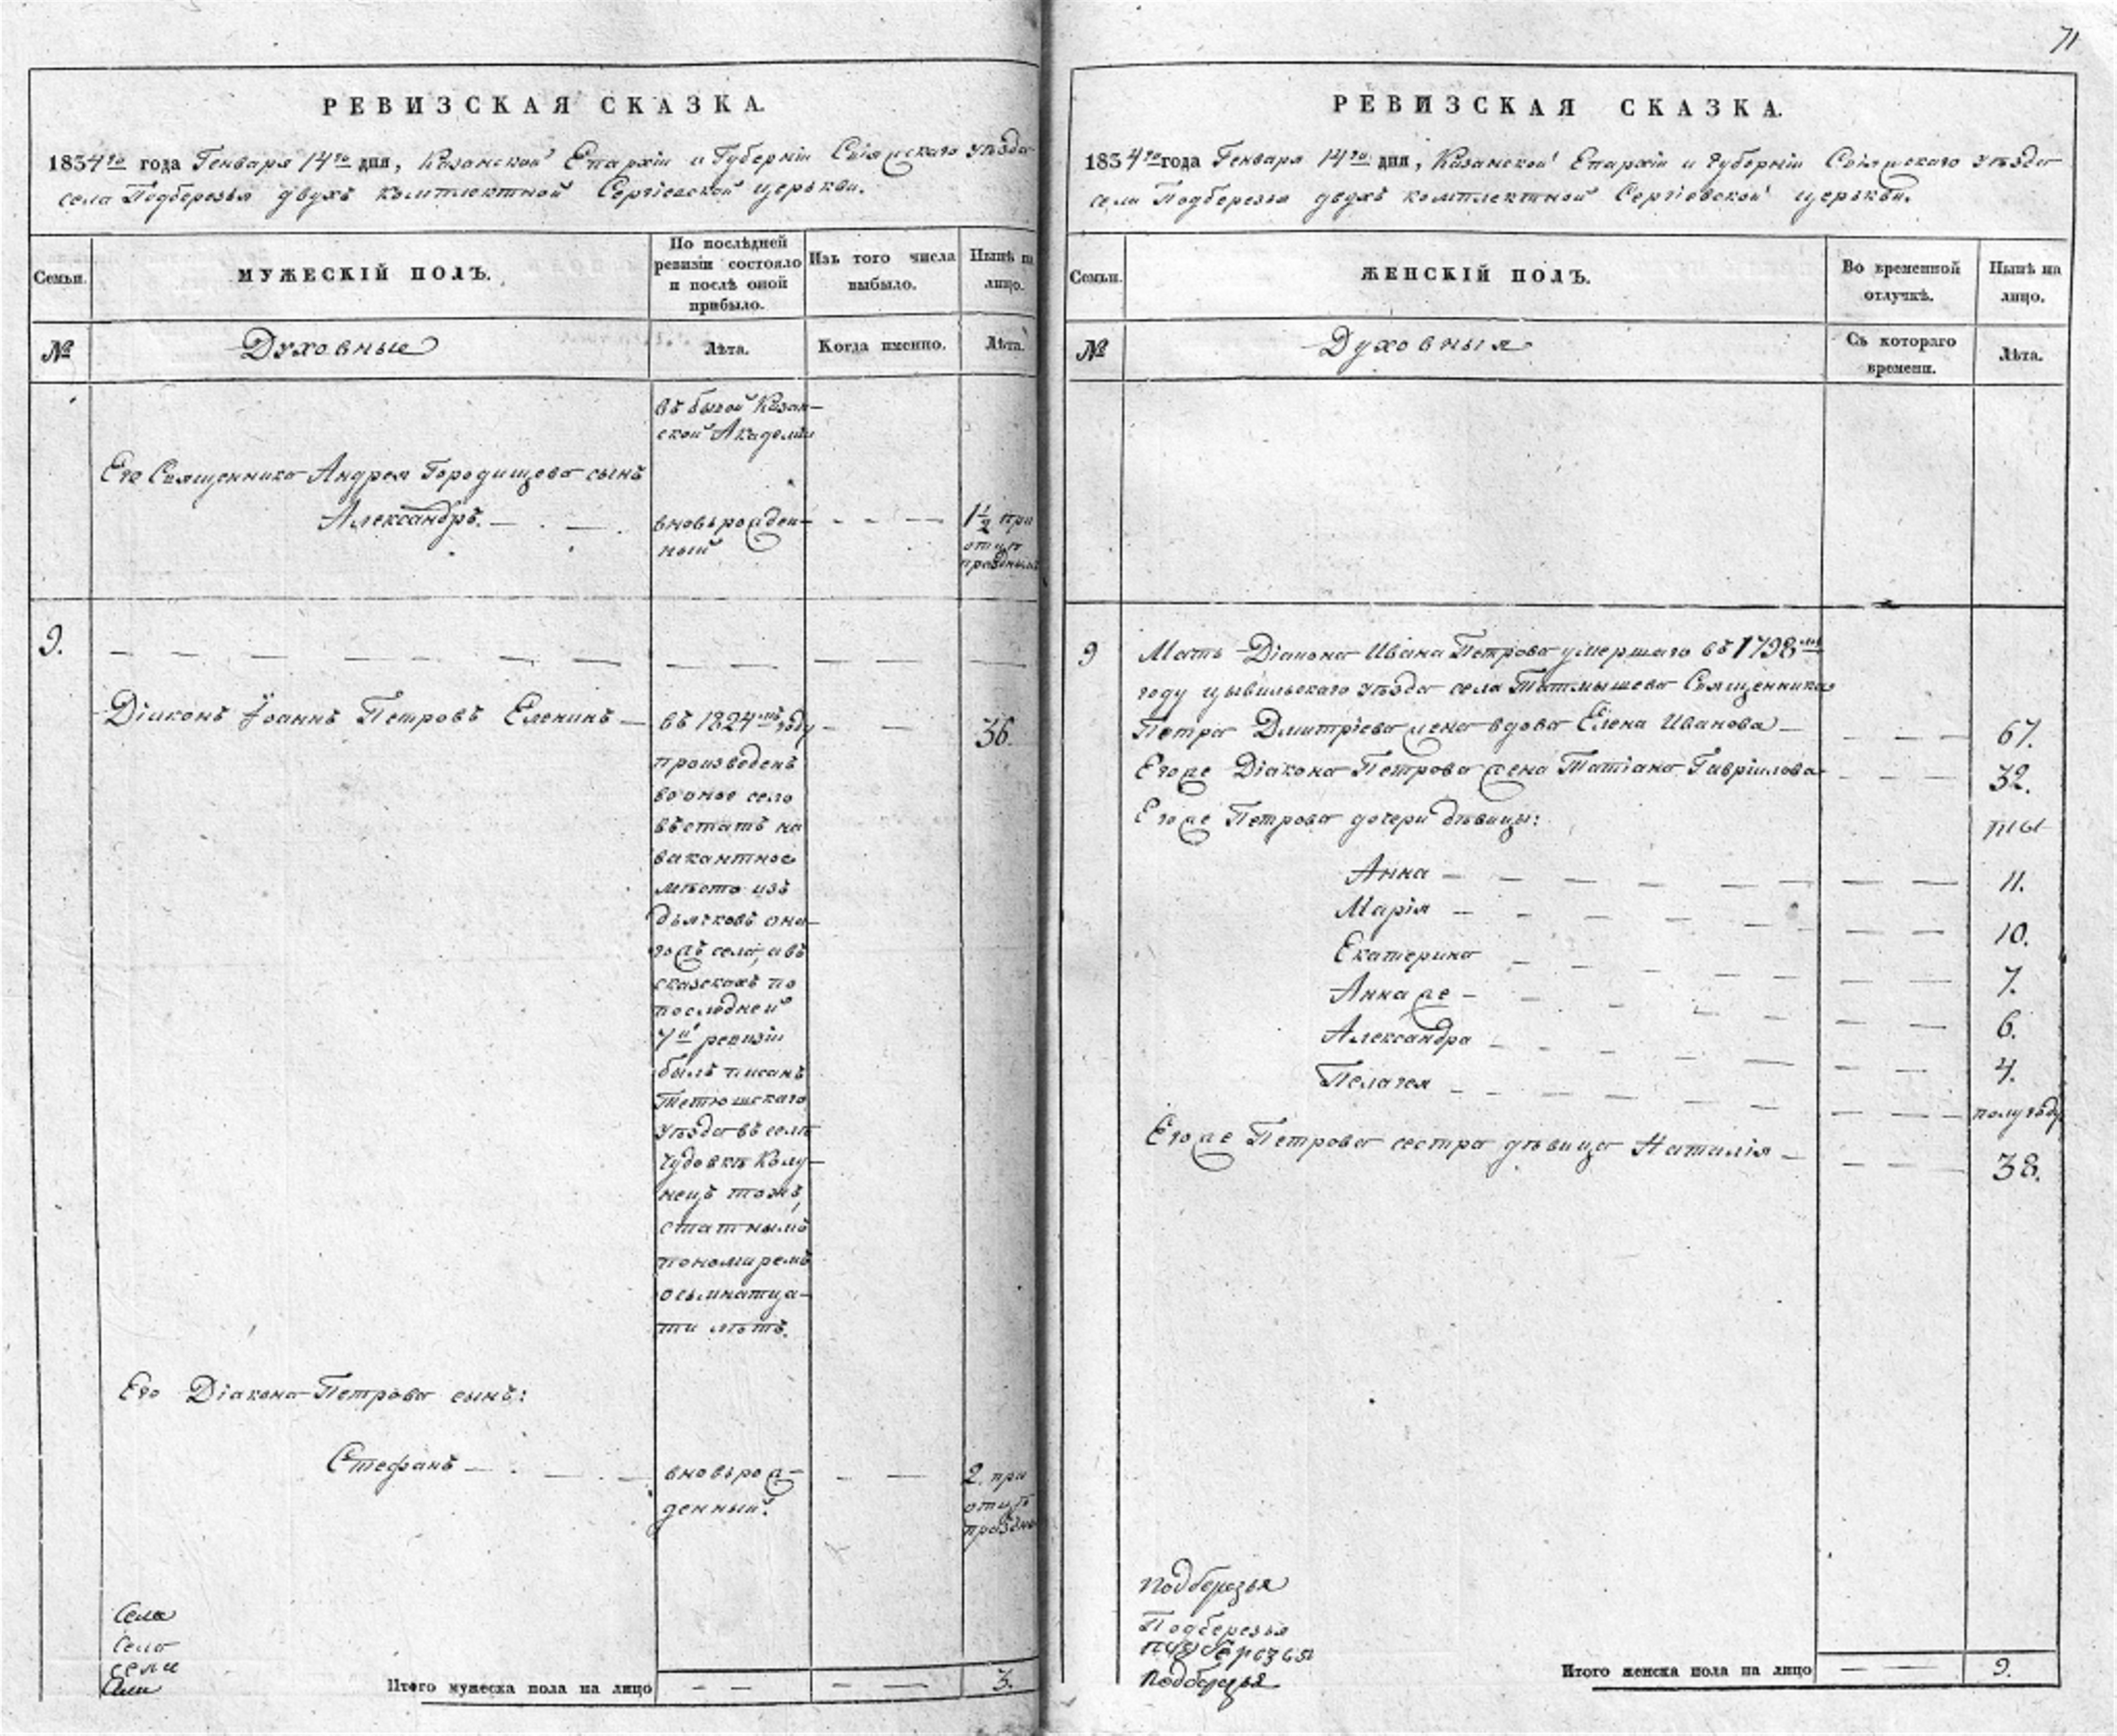 71
РЕВИЗСКАЯ СКАЗКА.
1834го года Генваря 14го дня, Казанской Епархіи и Губерніи Свіяжскаго уѣзда
села Подберезья двухъ комплектной Сергіевской церькви.
Семьи.
МУЖЕСКІЙ ПОЛЪ.
По послѣдней
ревизіи состояло
и послѣ оной
прибыло.
Изъ того числа
выбыло.
Нынѣ на
лицо.
№
Духовные
Лѣта.
Когда именно.
Лѣта.
въ бывой Казан-
ской Академіи
Его Священника Андрея Городищева сынъ
Александръ.
вновьрожден-
ный
1½ при
отцѣ
праздным
9.
Діаконъ Іоаннъ Петровъ Еленинъ
въ 1824мъ году
произведенъ
во оное село
въ статъ на
вакантное
мѣсто изъ
дьячковъ она-
гожъ села, а въ
сказскахъ по
последней
7й ревизіи
былъ писанъ
Тетюшскаго
уѣзда въ селѣ
Чудовкѣ Колу-
нецъ тожъ,
статнымъ
пономаремъ
осьмнатца-
ти лѣтъ.
36.
Его Діакона Петрова сынъ:
Стефанъ
вновьрож-
денный.
2. при
отцѣ
праздно
Села
Села
села
Села
Итого мужеска пола на лицо
3.
РЕВИЗСКАЯ СКАЗКА.
1834го года Генваря 14го дня, Казанской Епархіи и Губерніи Свіяжскаго уѣзда
села Подберезья двухъ комплектной Сергіевской церькви.
Семьи.
ЖЕНСКІЙ ПОЛЪ.
Во временной
отлучкѣ.
Нынѣ на
лицо.
№
Духовныя
Съ котораго
времени.
Лѣта.
9
Мать Діакона Ивана Петрова умершаго въ 1798мъ
году цывильскаго уѣзда села Татмышева Священника
Петра Дмитріева жена вдова Елена Иванова
67.
Егоже Діакона Петрова жена Татіана Гавріилова
32.
Егоже Петрова дочери дѣвицы:
Анна
11.
Марія
10.
Екатерина
7.
Анна же
6.
Александра
4.
Пелагея
полугоду
Егоже Петрова сестра дѣвица Наталія
38.
Подберезья
Подберезья
Подберезья
Подберезья
Итого женска пола на лицо
9.